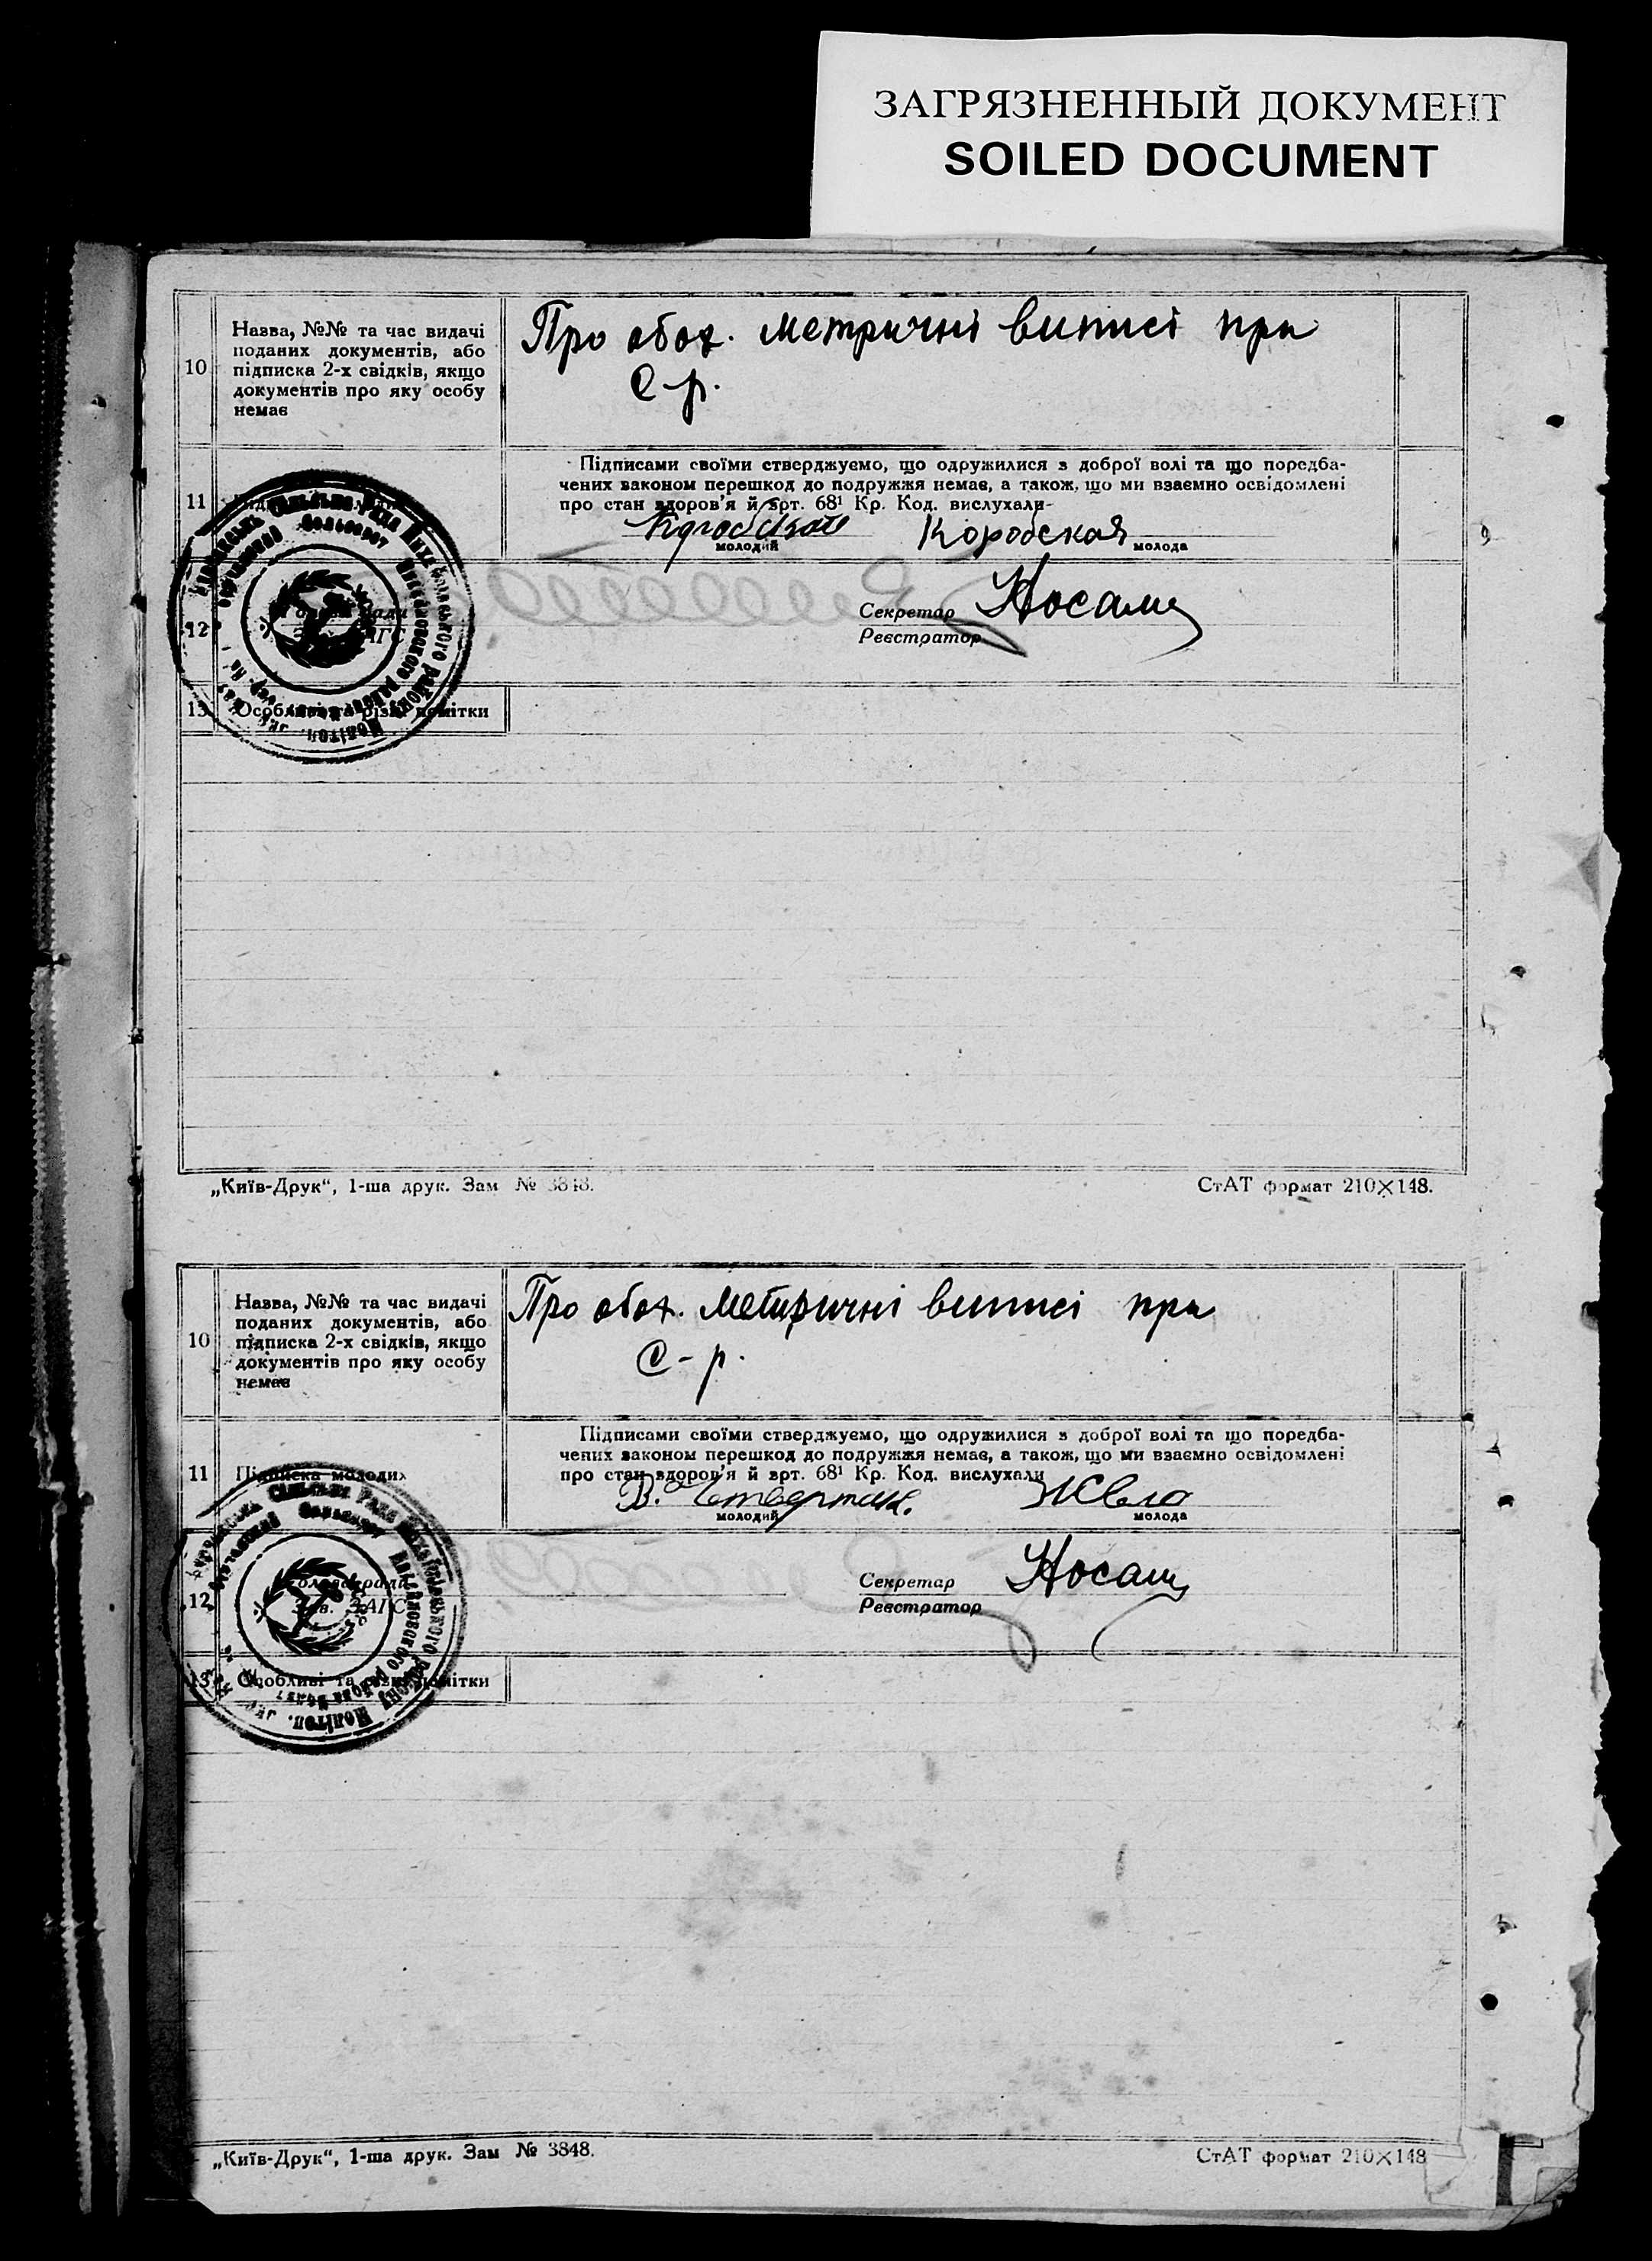 ЗАГРЯЗНЕННЫЙ ДОКУМЕНТ
SOILED DOCUMENT
10
Назва, №№ та час видачі
поданих документів, або
підписка 2-х свідків, якщо
документів про яку особу
немає
Про обох. метричні виписі при
С-р.
11
Підписами своїми стверджуємо, що одружилися з доброї волі та що передба-
чених законом перешкод до подружжя немає, а також, що ми взаємно освідомлені
про стан здоров'я й арт. 68¹ Кр. Код. вислухали
Коробская
молодий
молода
12
Секретар Носань
Реєстратор
13
Особливі та різні помітки
„Київ-Друк“, 1-ша друк. Зам № 3848.
СтАТ формат 210×148.
10
Назва, №№ та час видачі
поданих документів, або
підписка 2-х свідків, якщо
документів про яку особу
немає
Про обох. метричні виписі при
С-р.
11
Підписка молодих
Підписами своїми стверджуємо, що одружилися з доброї волі та що передба-
чених законом перешкод до подружжя немає, а також, що ми взаємно освідомлені
про стан здоров'я й арт. 68¹ Кр. Код. вислухали
В. Четвертак.
молодий
молода
12
Голова ради
Зав. ЗАГС
Секретар Носань
Реєстратор
13
Особливі та різні помітки
„Київ-Друк“, 1-ша друк. Зам № 3848.
СтАТ формат 210×148